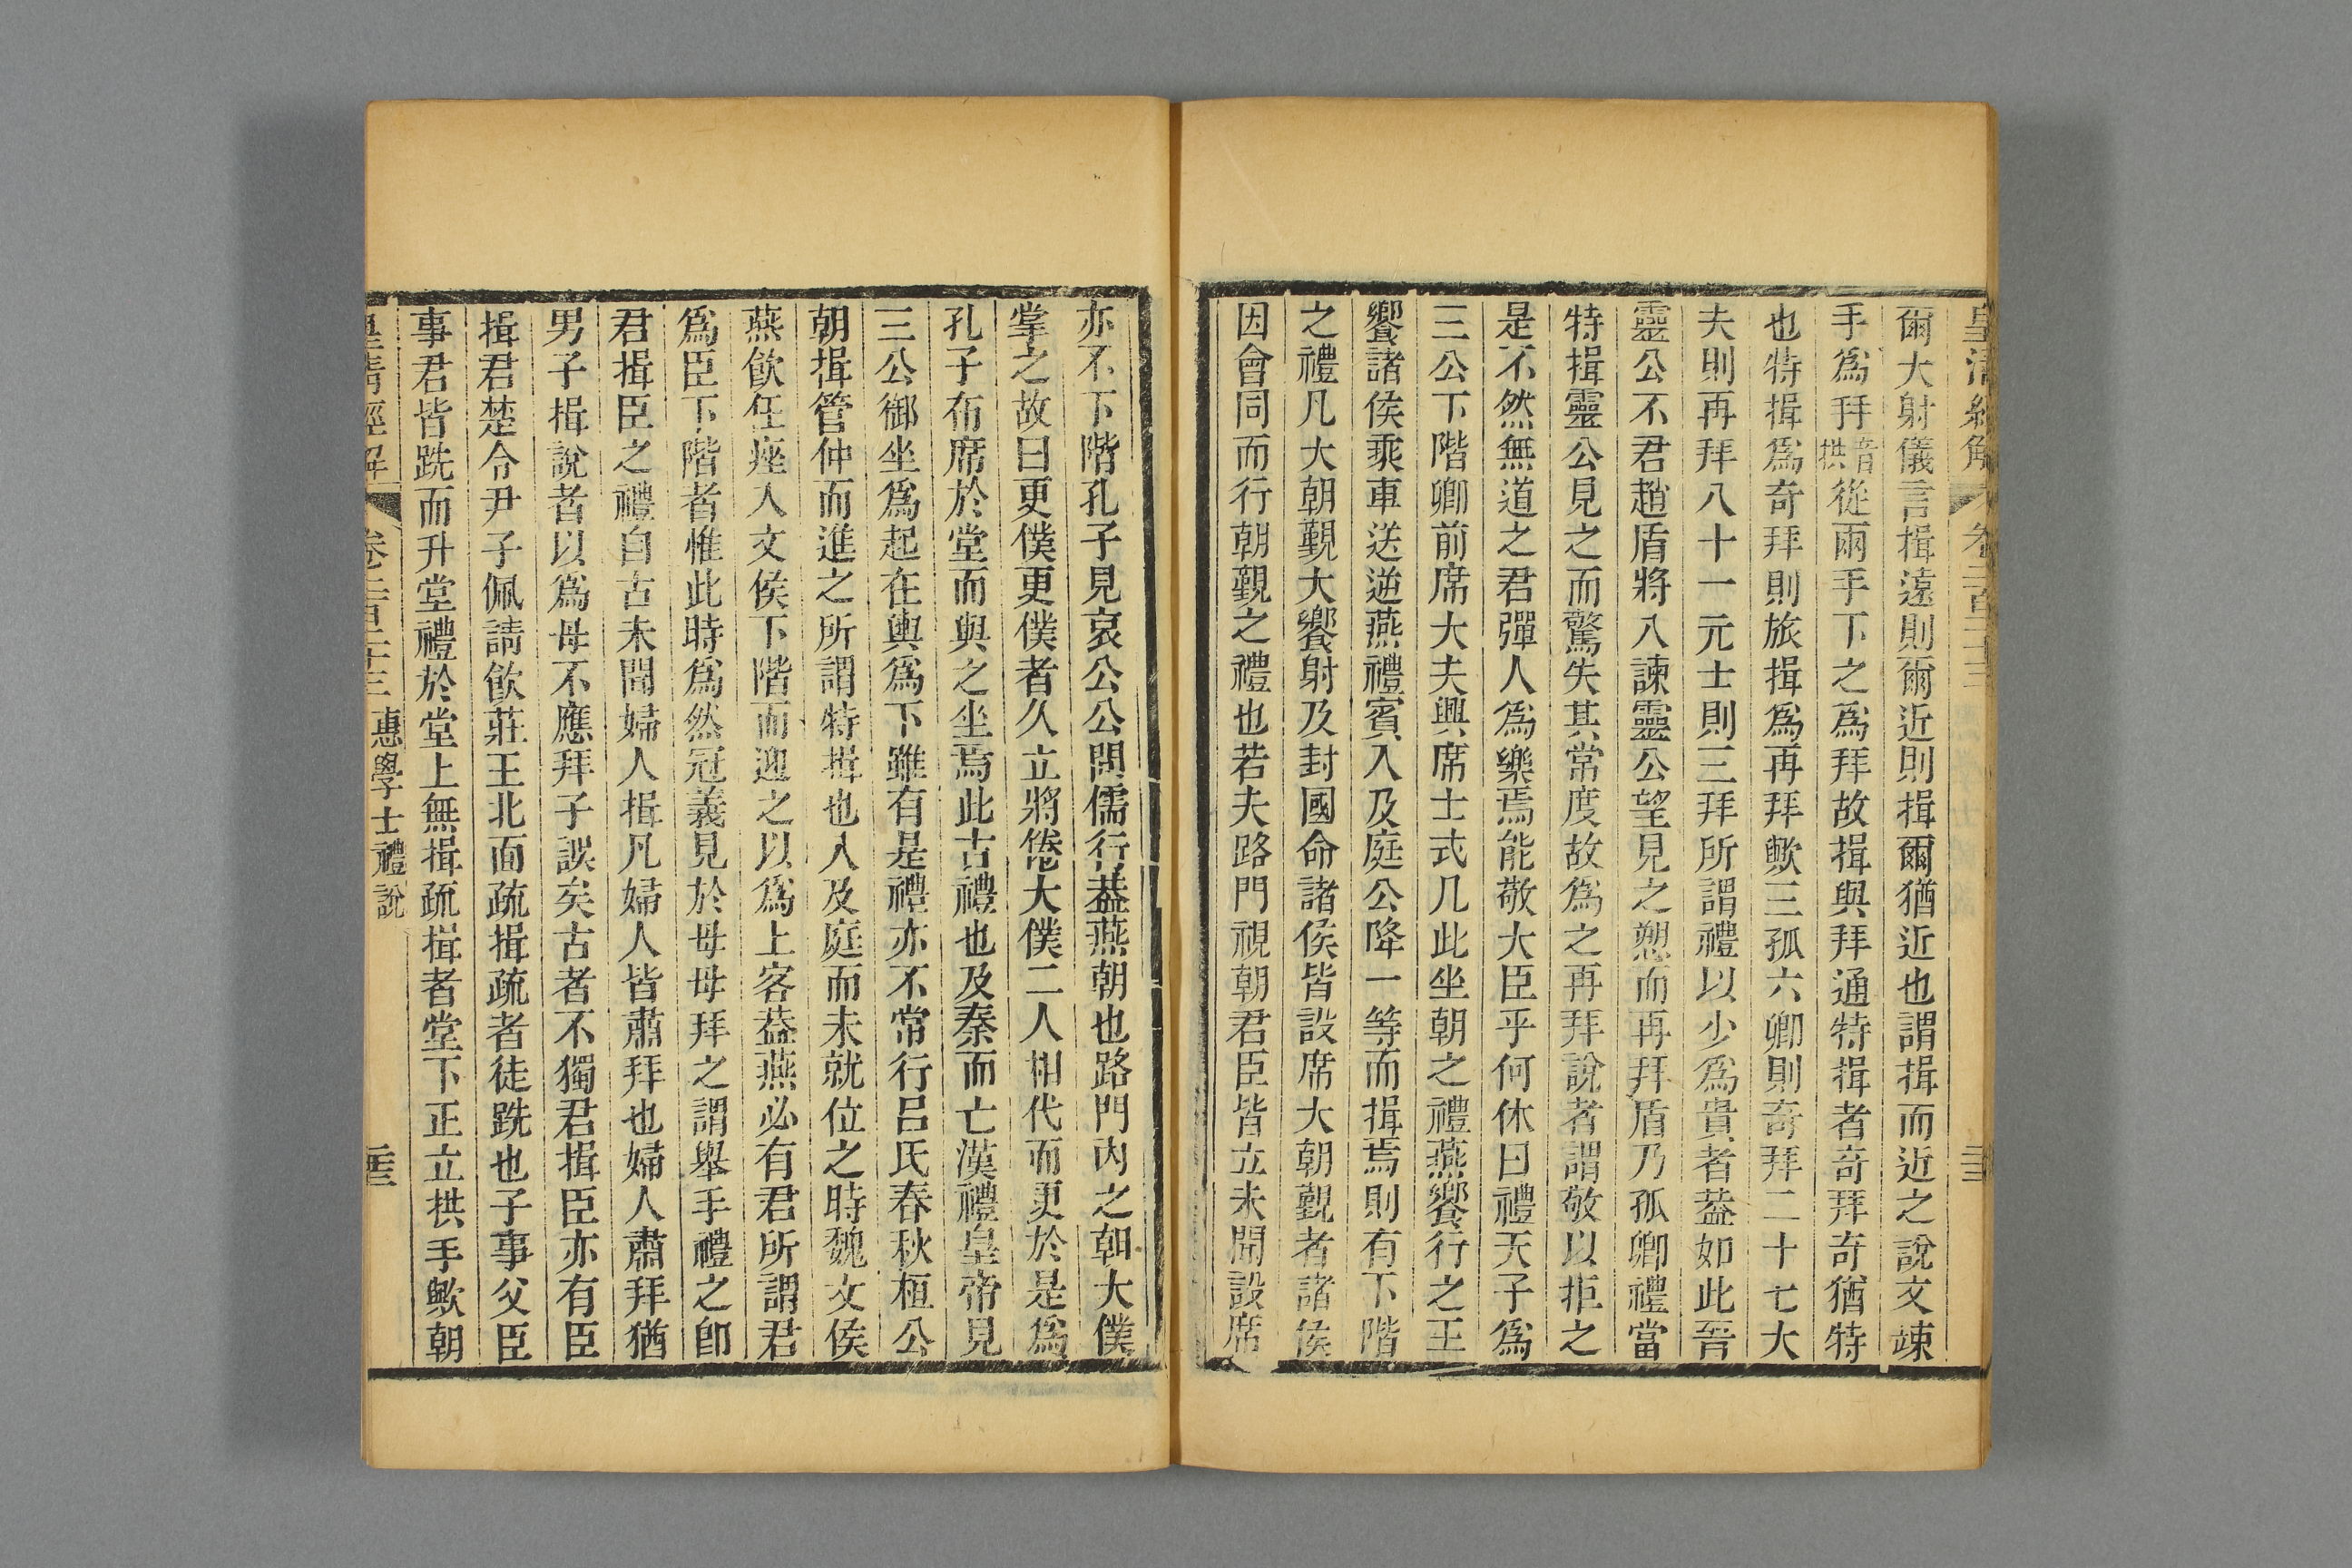 皇清經解 卷二百二十三
爾大射儀言揖遠則爾近則揖爾猶近也謂揖而近之說文竦
手爲𢪙音拱從兩手下之爲拜故揖與拜通特揖者奇拜奇猶特
也特揖爲奇拜則旅揖爲再拜歟三孤六卿則奇拜二十七大
夫則再拜八十一元士則三拜所謂禮以少爲貴者葢如此晉
靈公不君趙盾將入諫靈公望見之愬而再拜盾乃孤卿禮當
特揖靈公見之而驚失其常度故爲之再拜說者謂敬以拒之
是不然無道之君彈人爲樂焉能敬大臣乎何休曰禮天子爲
三公下階卿前席大夫興席士式几此坐朝之禮燕饗行之王
饗諸侯乘車送逆燕禮賓入及庭公降一等而揖焉則有下階
之禮凡大朝覲大饗射及封國命諸侯皆設席大朝覲者諸侯
因會同而行朝覲之禮也若夫路門視朝君臣皆立未聞設席
亦不下階孔子見哀公公問儒行葢燕朝也路門內之朝大僕
掌之故曰更僕更僕者久立將倦大僕二人相代而更於是爲
孔子布席於堂而與之坐焉此古禮也及秦而亡漢禮皇帝見
三公御坐爲起在輿爲下雖有是禮亦不常行呂氏春秋桓公
朝揖管仲而進之所謂特揖也入及庭而未就位之時魏文侯
燕飮任座入文侯下階而迎之以爲上客葢燕必有君所謂君
爲臣下階者惟此時爲然冠義見於母母拜之謂舉手禮之卽
君揖臣之禮自古未聞婦人揖凡婦人皆肅拜也婦人肅拜猶
男子揖說者以爲母不應拜子誤矣古者不獨君揖臣亦有臣
揖君楚令尹子佩請飮莊王北面疏揖疏者徒跣也子事父臣
事君皆跣而升堂禮於堂上無揖疏揖者堂下正立拱手歟朝
皇清經解 卷二百二十三 惠學士禮說 二十三